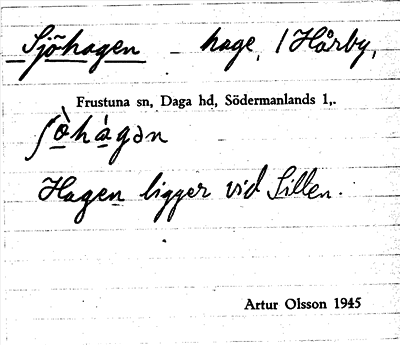 Sjöhagen - hage, / Hårby,
Frustuna sn, Daga hd, Södermanlands l,.
ʃö̀hàgən
Hagen ligger vid Sillen.
Artur Olsson 1945